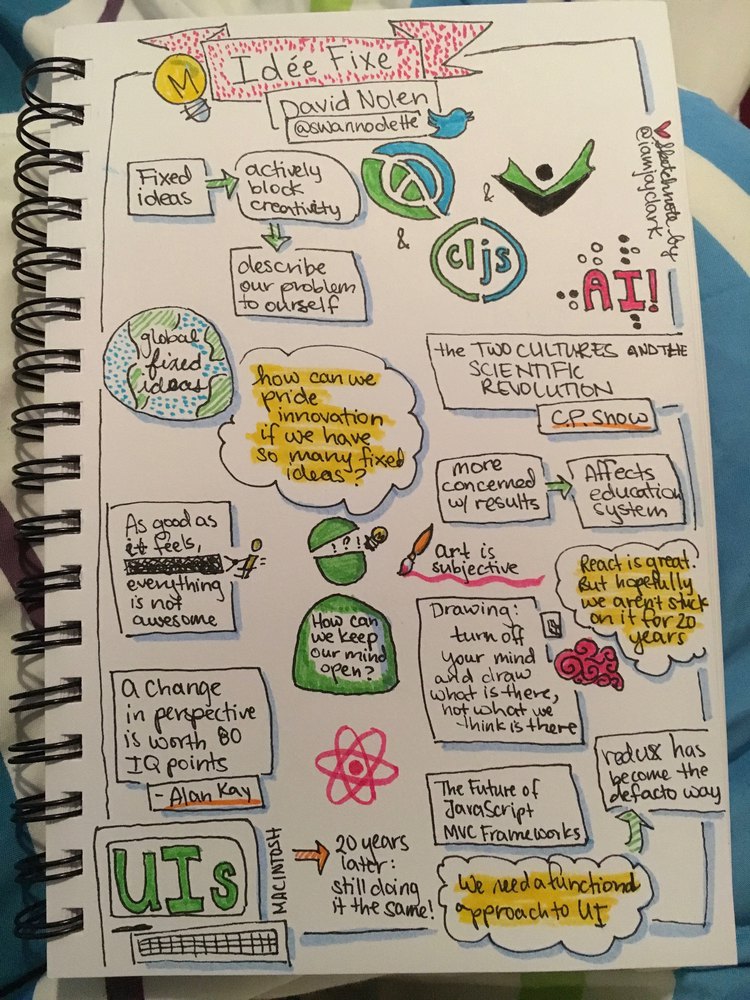 Idée Fixe
David Nolen
@swannodette
♥ sketchnote by
@iamjayclark
Fixed
ideas
actively
block
creativity
describe
our problem
to ourself
&
&
cljs
AI!
global
fixed
ideas
how can we
pride
innovation
if we have
so many fixed
ideas?
the TWO CULTURES AND THE
SCIENTIFIC
REVOLUTION
C.P. Snow
more
concerned
w/ results
Affects
education
system
As good as
it feels,
everything
is not
awesome
?!?!
How can
we keep
our mind
open?
art is
subjective
React is great.
But hopefully
we aren't stuck
on it for 20
years
Drawing:
turn off
your mind
and draw
what is there,
not what we
think is there
a change
in perspective
is worth 80
IQ points
- Alan Kay
The Future of
JavaScript
MVC Frameworks
redux has
become the
defacto way
UIs
MACINTOSH
20 years
later:
still doing
it the same!
We need a functional
approach to UI